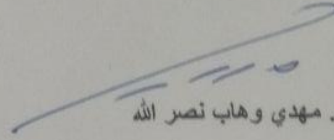 . مهدي وهاب نصر الله